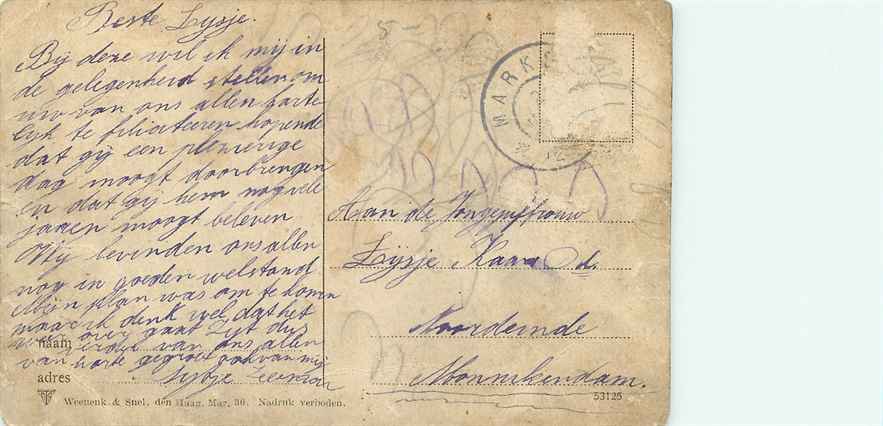 Beste Lijsje.
Bij deze wil ik mij in
de gelegenheid stellen om
uw van ons allen harte
lijk te filiciteeren hopende
dat gij een plezierige
dag moogt doorbrengen
en dat gij hem nog vele
jaaren moogt beleven
Wij bevinden ons allen
nog in goeden welstand
Mijn plan was om te komen
maar ik denk wel dat het
over gaat Zijt dus
van ons allen
van harte gegroet ook van mij
Sijtje Zeeman
naam
adres
Weenenk & Snel, den Haag, Mar. 36. Nadruk verboden.
MARK
Aan de Jongejuffrouw
Lijsje Kaars d.
Noordeinde
Monnikendam.
53125